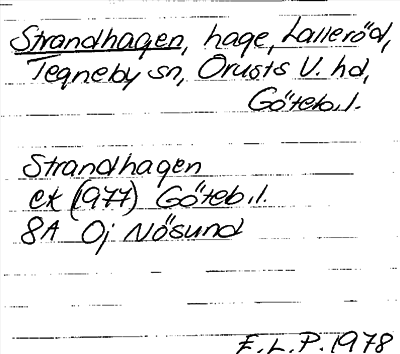 Strandhagen, hage, Lalleröd,
Tegneby sn, Orusts V. hd,
Göteb. l.
Strandhagen
ek (977) Göteb. l.
8A Oj Nösund
E. L. P. 1978